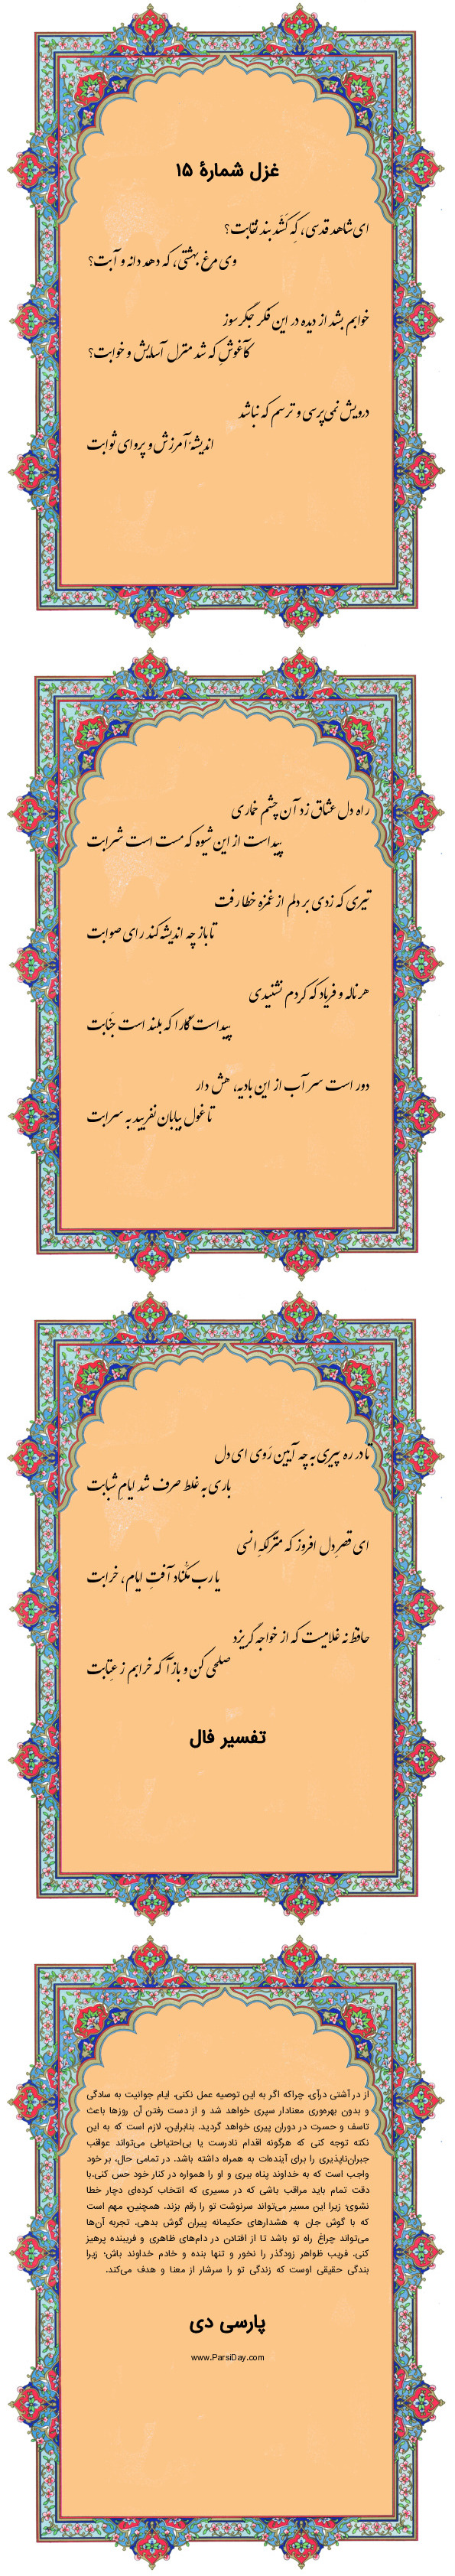 غزل شمارهٔ ۱۵
ای شاهد قدسی، که کَشَد بند نقابت؟
وی مرغ بهشتی، که دهد دانه و آبت؟
خوابم بشد از دیده در این فکر جگرسوز
کآغوشِ که شد منزل آسایش و خوابت؟
درویش نمی‌پرسی و ترسم که نباشد
اندیشهٔ آمرزش و پروای ثوابت
راه دل عشاق زد آن چشم خماری
پیداست از این شیوه که مست است شرابت
تیری که زدی بر دلم از غمزه خطا رفت
تا باز چه اندیشه کند رای صوابت
هر ناله و فریاد که کردم نشنیدی
پیداست نگارا که بلند است جَنابت
دور است سر آب از این بادیه، هش دار
تا غول بیابان نفریبد به سرابت
تا در ره پیری به چه آیین رَوی ای دل
باری به غلط صرف شد ایامِ شبابت
ای قصرِ دل افروز که منزلگهِ انسی
یا رب مَکُناد آفتِ ایام، خرابت
حافظ نه غلامیست که از خواجه گریزد
صلحی کن و بازآ که خرابم ز عتِابت
تفسیر فال
از در آشتی درآی، چراکه اگر به این توصیه عمل نکنی، ایام جوانیت به سادگی
و بدون بهره‌وری معنادار سپری خواهد شد و از دست رفتن آن روزها باعث
تاسف و حسرت در دوران پیری خواهد گردید. بنابراین، لازم است که به این
نکته توجه کنی که هرگونه اقدام نادرست یا بی‌احتیاطی می‌تواند عواقب
جبران‌ناپذیری را برای آینده‌ات به همراه داشته باشد. در تمامی حال، بر خود
واجب است که به خداوند پناه ببری و او را همواره در کنار خود حس کنی.با
دقت تمام باید مراقب باشی که در مسیری که انتخاب کرده‌ای دچار خطا
نشوی؛ زیرا این مسیر می‌تواند سرنوشت تو را رقم بزند. همچنین، مهم است
که با گوش جان به هشدارهای حکیمانه پیران گوش بدهی. تجربه آن‌ها
می‌تواند چراغ راه تو باشد تا از افتادن در دام‌های ظاهری و فریبنده پرهیز
کنی. فریب ظواهر زودگذر را نخور و تنها بنده و خادم خداوند باش؛ زیرا
بندگی حقیقی اوست که زندگی تو را سرشار از معنا و هدف می‌کند.
پارسی دی
www.ParsiDay.com